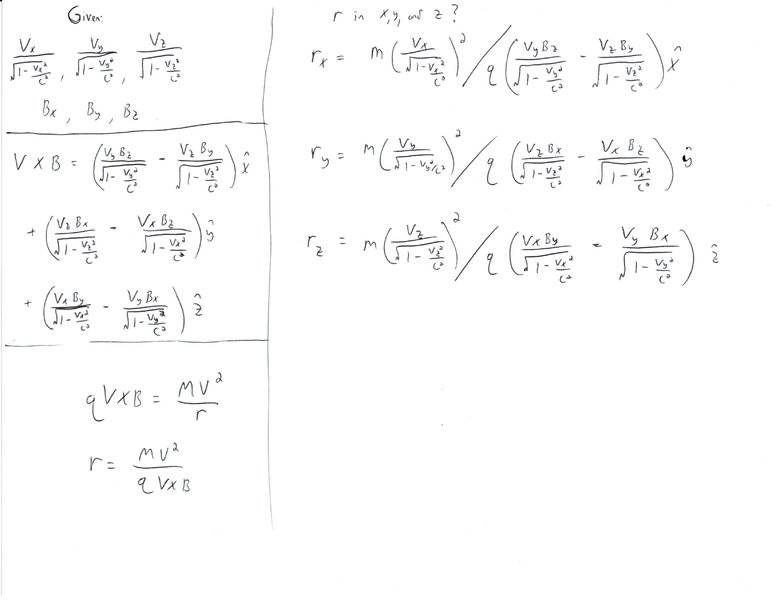 Given:
Vx/√(1-Vx²/C²) , Vy/√(1-Vy²/C²) , Vz/√(1-Vz²/C²)
Bx , By , Bz
V X B = (VyBz/√(1-Vy²/C²) - VzBy/√(1-Vz²/C²)) x̂
+ (VzBx/√(1-Vz²/C²) - VxBz/√(1-Vx²/C²)) ŷ
+ (VxBy/√(1-Vx²/C²) - VyBx/√(1-Vy²/C²)) ẑ
qVXB = MV²/r
r = MV²/qVXB
r in x,y, and z ?
rx = m(Vx/√(1-Vx²/C²))² / q(VyBz/√(1-Vy²/C²) - VzBy/√(1-Vz²/C²)) x̂
ry = m(Vy/√(1-Vy²/C²))² / q(VzBx/√(1-Vz²/C²) - VxBz/√(1-Vx²/C²)) ŷ
rz = m(Vz/√(1-Vz²/C²))² / q(VxBy/√(1-Vx²/C²) - VyBx/√(1-Vy²/C²)) ẑ